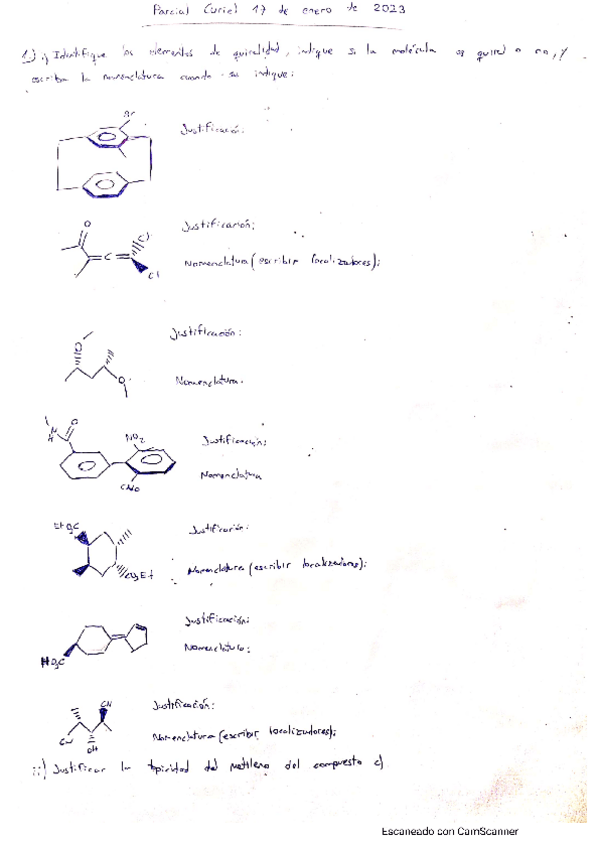 Parcial Curiel 17 de enero de 2023
1) i) Identifique los elementos de quiralidad, indique si la molécula es quiral o no, y
escriba la nomenclatura cuando se indique:
Br
Justificación:
O
Justificación:
Cl
C
Nomenclatura (escribir localizadores):
Cl
Justificación:
O
Nomenclatura.
O
NO2
Justificación:
N
H
Nomenclatura
CHO
EtO2C
Justificación:
Nomenclatura (escribir localizadores):
CO2Et
Justificación:
Nomenclatura:
HO2C
CN
Justificación:
Nomenclatura (escribir localizadores);
CN
OH
ii) Justificar la topicidad del metileno del compuesto c)
Escaneado con CamScanner